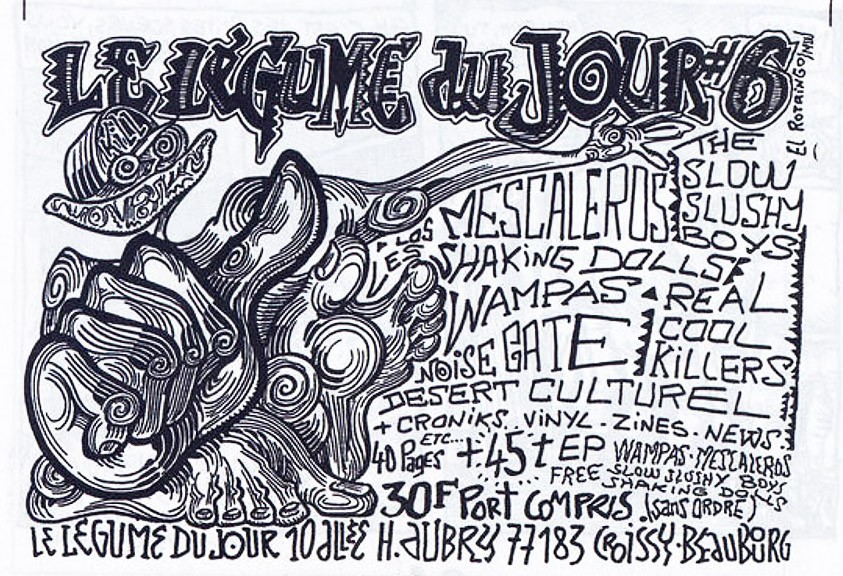 LE LÉGUME du JOUR #6
El RotrinGo
THE
SLOW
SLUSHY
BOYS
LOS
MESCALEROS
LES
SHAKING DOLLS
WAMPAS
REAL
COOL
KILLERS
NOISE GATE
DESERT CULTUREL
+ CRONIKS.. VINYL - ZINES - NEWS.
ETC...
40 Pages + 45t EP WAMPAS - MESCALEROS
FREE SLOW SLUSHY BOYS
SHAKING DOLLS
30F PORT COMPRIS (sans ORDRE)
LE LEGUME DU JOUR 10 allée H. AUBRY 77183 CROISSY-BEAUBURG